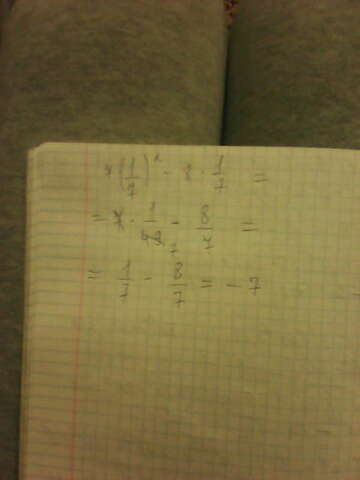 7(1/7)² - 8 · 1/7 =
= 7 · 1/49 7 - 8/7 =
= 1/7 - 8/7 = - 7